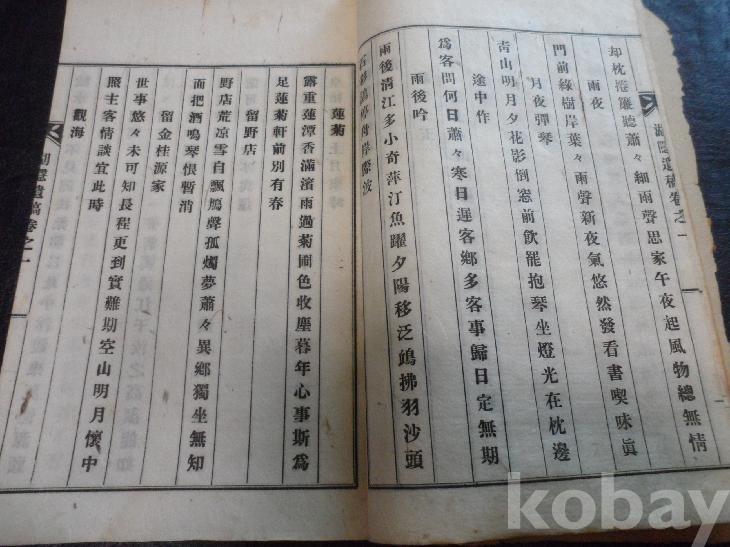 却枕捲簾聽蕭々細雨聲思家午夜起風物總無情
雨夜
門前綠樹岸葉々雨聲新夜氣悠然發看書喫味眞
月夜彈琴
靑山明月夕花影倒窓前飮罷抱琴坐燈光在枕邊
途中作
爲客問何日蕭々寒日遲客鄕多客事歸日定無期
雨後吟
雨後淸江多小奇萍汀魚躍夕陽移泛鴆拂羽沙頭
遺稿卷之一
蓮菊
露重蓮潭香滿濱雨過菊圃色收塵暮年心事斯爲
足蓮菊軒前別有春
留野店
野店荒凉雪自飄鴈聲孤燭夢蕭々異鄕獨坐無知
面把酒鳴琴恨暫消
留金桂源家
世事悠々未可知長程更到實難期空山明月懷中
照主客情談宜此時
觀海
遺稿卷之一
kobay